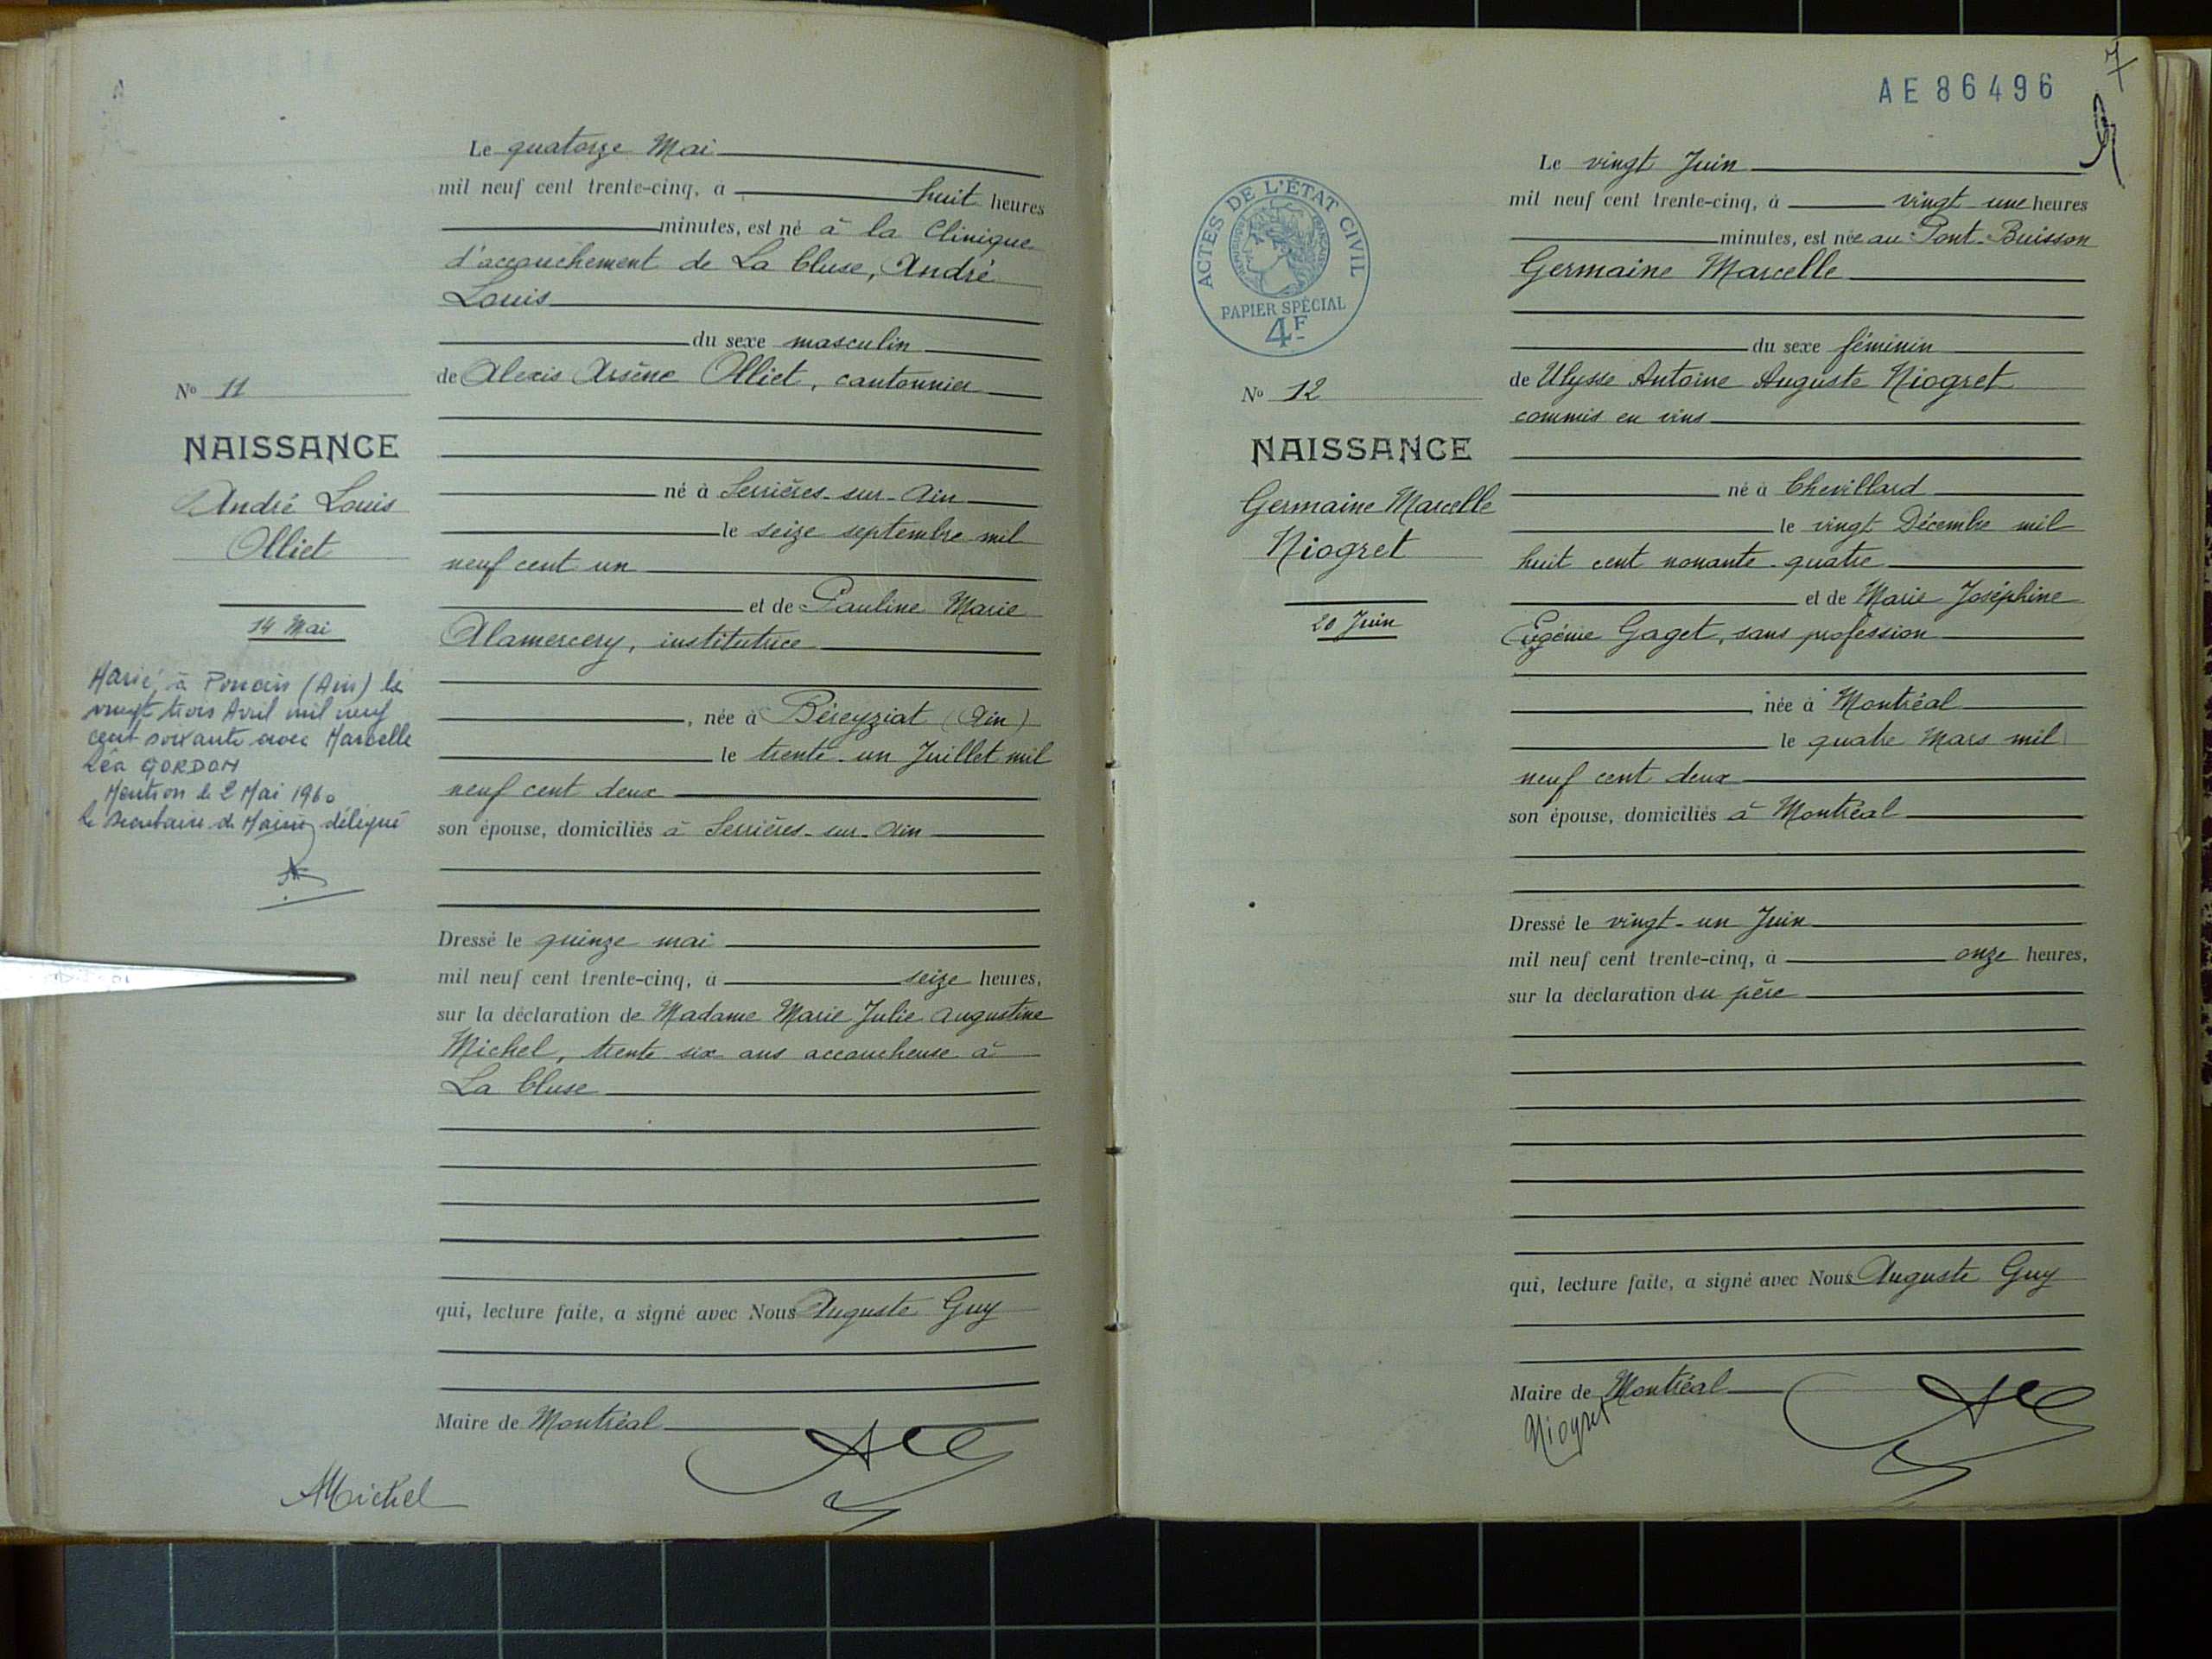 Le quatorze Mai
mil neuf cent trente-cinq, à huit heures
minutes, est né à la Clinique
d'accouchement de La Cluse, André
Louis
du sexe masculin
de Alexis Arsène Olliet, cantonnier
né à Serrières-sur-Ain
le seize septembre mil
neuf cent un
et de Pauline Marie
Alamercery, institutrice
, née à Béreyziat (Ain)
le trente-un Juillet mil
neuf cent deux
son épouse, domiciliés à Serrières-sur-Ain
Dressé le quinze mai
mil neuf cent trente-cinq, à seize heures,
sur la déclaration de Madame Marie Julie Augustine
Michel, trente six ans accoucheuse à
La Cluse
qui, lecture faite, a signé avec Nous Auguste Guy
Maire de Montréal
Michel
No 11
NAISSANCE
André Louis
Olliet
14 Mai
Marié à (Ain) le
vingt trois Avril mil neuf
cent soixante avec Marcelle
Léa GORDON
Mention le 2 Mai 1960
le secrétaire de Mairie délégué
AE 86496
7
Le vingt Juin
mil neuf cent trente-cinq, à vingt une heures
minutes, est née au Pont-Buisson
Germaine Marcelle
du sexe féminin
de Ulysse Antoine Auguste Niogret
commis en vins
né à Chevillard
le vingt Décembre mil
huit cent nonante-quatre
et de Marie Joséphine
Eugénie Gaget, sans profession
née à Montréal
le quatre Mars mil
neuf cent deux
son épouse, domiciliés à Montréal
Dressé le vingt-un Juin
mil neuf cent trente-cinq, à onze heures,
sur la déclaration du père
qui, lecture faite, a signé avec Nous Auguste Guy
Maire de Montréal
Niogret
ACTES DE L'ÉTAT CIVIL
PAPIER SPÉCIAL
4F
No 12
NAISSANCE
Germaine Marcelle
Niogret
20 Juin